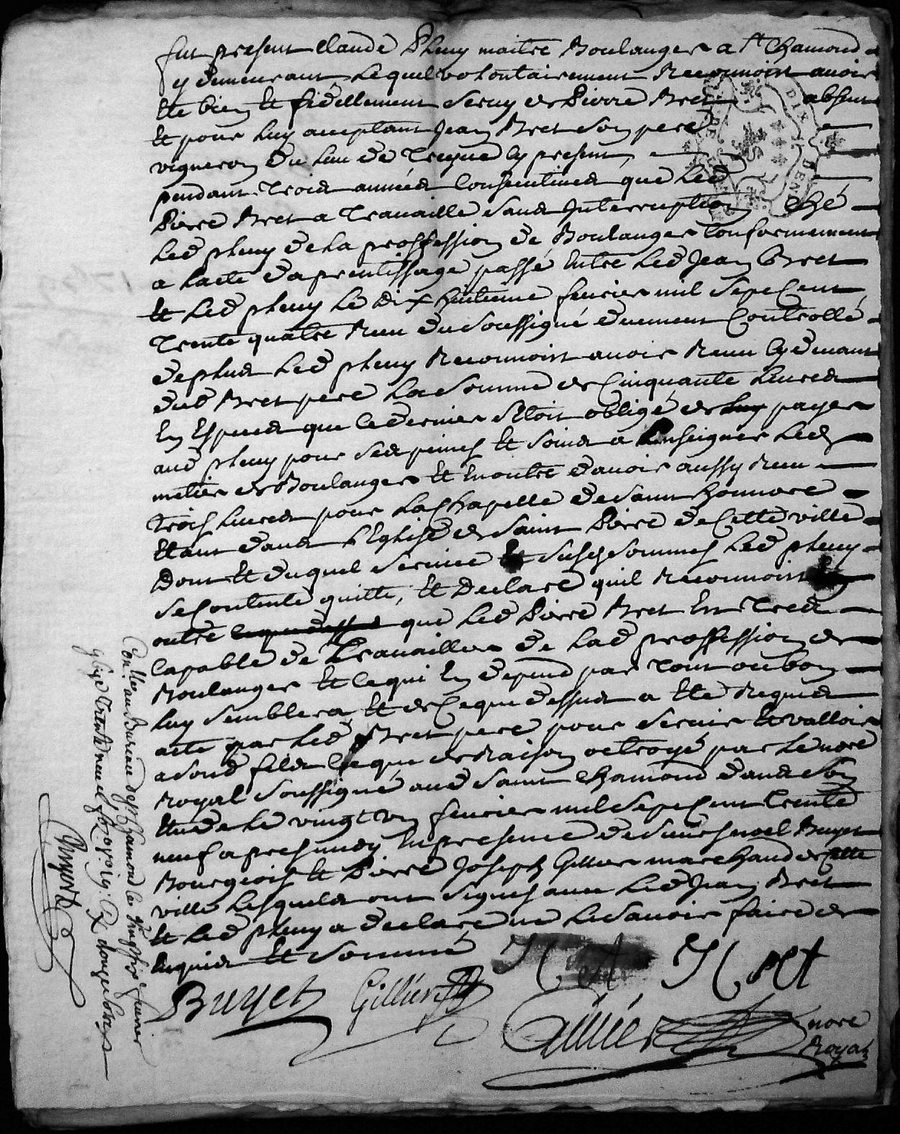 fut present Claude Pleny maitre Boulanger a St Chamond
y demeurant lequel volontairement Reconnoist avoir
Ete bien et fidellement servy de Pierre Bret absent
Et pour luy acceptant Jean Bret son pere
vigneron du lieu de cy present
pendant Trois années Consecutives que led
Pierre Bret a Travaillé sans Interruption ché
led pleny de la proffession de Boulanger Conformement
a lacte daprentissage passé Entre led Jean Bret
Et led pleny le dix huitieme fevrier mil sept Cent
Trente quatre Receu du soussigné duement Controllé
de plus led pleny Reconnoist avoir Receu cy devant
dud Bret pere la somme de Cinquante livres
En Especes que ce dernier Setoit obligé de luy payer
aud pleny pour ses peines Et soins a Enseigner led
metier de Boulanger Et En outre davoir aussy Receu
trois livres pour la Chapelle de Saint honnoré
Etant dans l'Eglise de Saint Pierre de Cette ville
Dont Et duquel service Et susd sommes led pleny
se Contente quitte, Et Declare quil Reconnoist
outre que led Pierre Bret Est Tres
Capable de Travailler de lad proffession de
Boulanger Et ce qui En depend par Tout ou bon
luy semblera, Et de Ce que dessus a Ete Requis
acte par led Bret pere pour servir Et valloir
a sond fils Ce que de Raison octroyé par le nore
Royal soussigné aud Saint Chamond dans son
Etude le vingt un fevrier mil sept Cent Trente
neuf apres midy En presence de sieurs noel Buyet
Bourgeois Et Pierre Joseph Gillier marchand de Cette
ville Lesquels ont signes avec led Jean Bret
Et led pleny a declaré ne le savoir faire de
Enquis Et sommé
Buyet Gillier
nore
Royal
Con.lle au Bureau de St Chamond le fevrier
Trente neuf Rx douze sols
DIX DEN